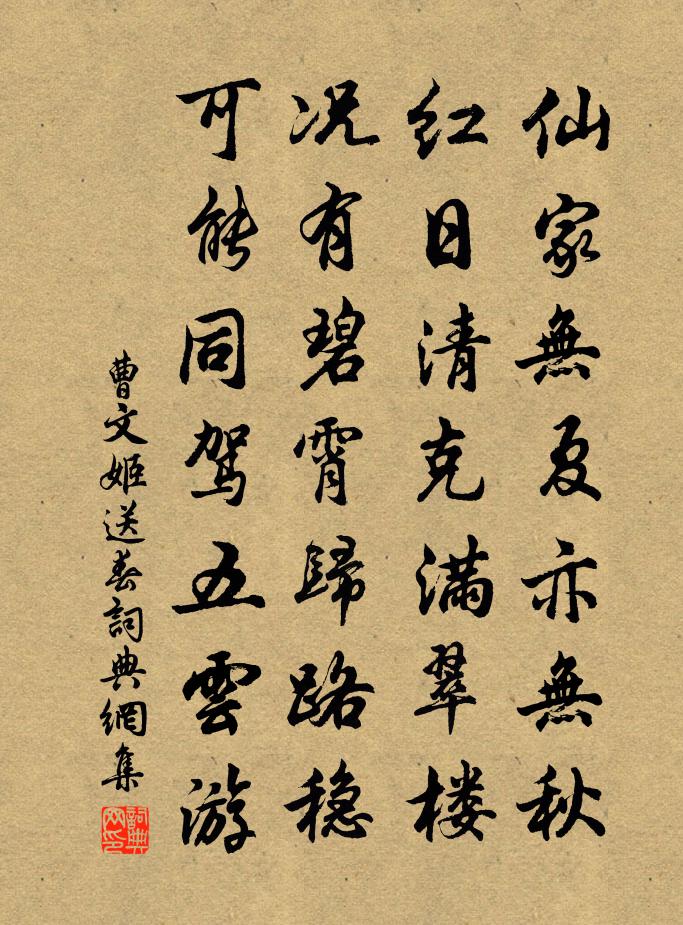 仙家無夏亦無秋
紅日清克滿翠楼
况有碧霄歸路稳
可能同駕五雲游
曹文姬送春詞典網集
詞典网印